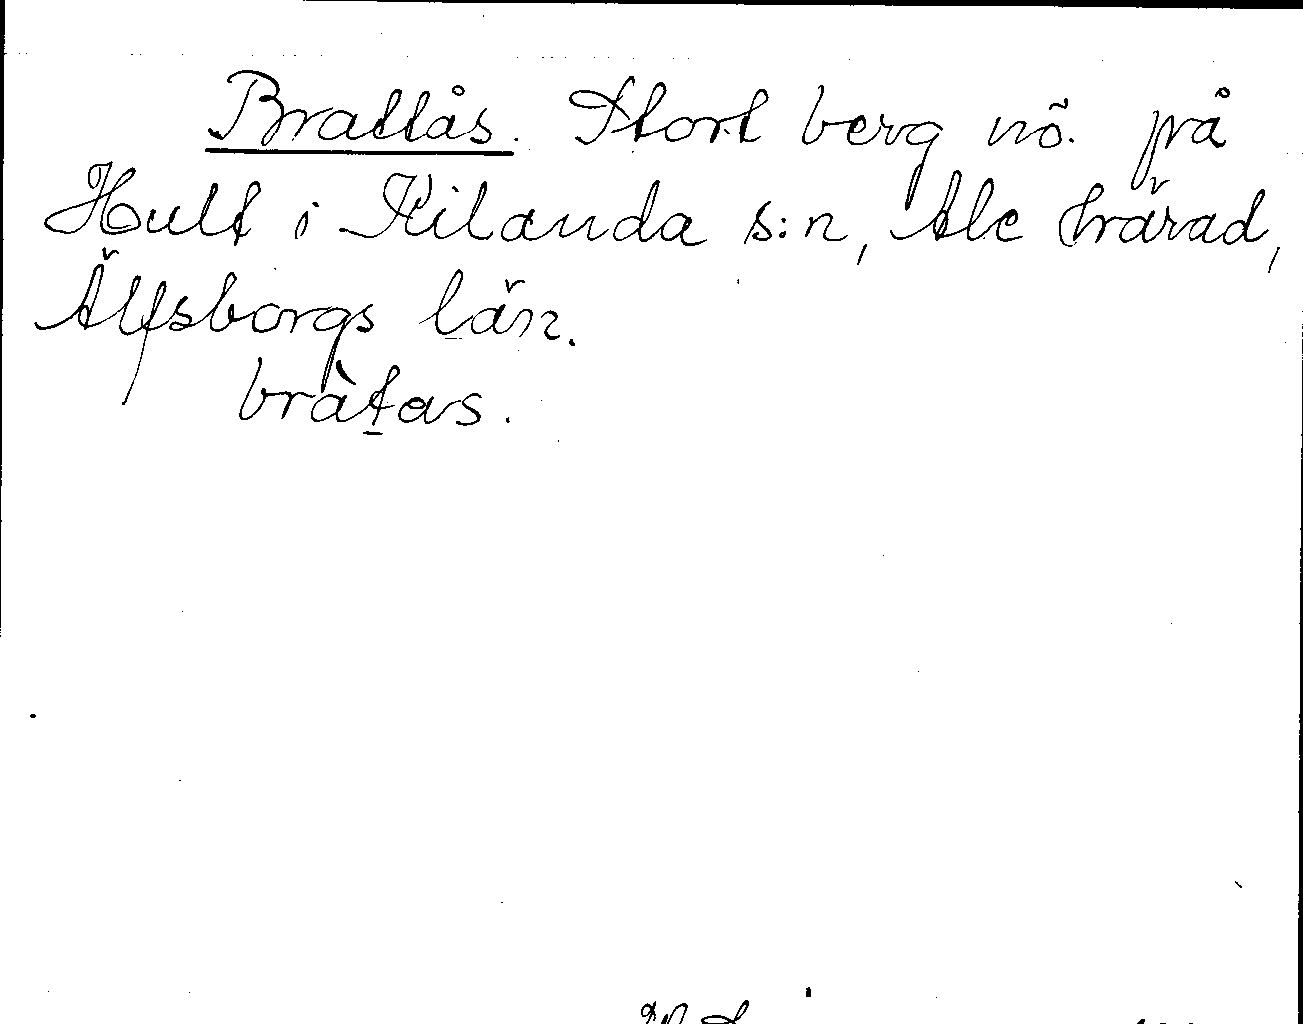 Brattås. Stort berg nö. på
Hult i Kilanda s:n, Ale härad,
Älfsborgs län.
bràtas.